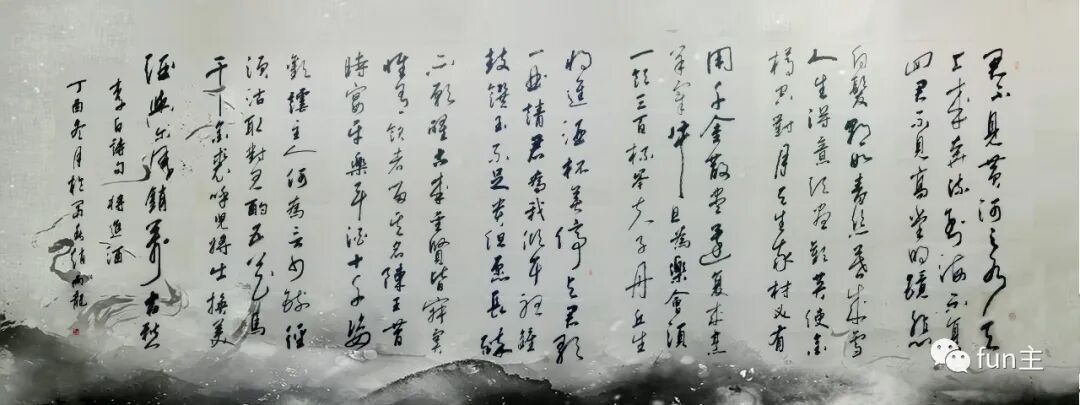 君不見黃河之水天
上来奔流到海不复
回君不見高堂明鏡悲
白髮朝如青丝暮成雪
人生得意须尽歡莫使金
樽空對月天生我材必有
用千金散尽還复来烹
羊宰牛且為樂會須
一飲三百杯岑夫子丹丘生
将進酒杯莫停与君歌
一曲請君為我傾耳聽鐘
鼓饌玉不足贵但愿長醉
不願醒古来聖賢皆寂寞
惟有飲者留其名陳王昔
時宴平樂斗酒十千恣
歡謔主人何為言少錢徑
須沽取對君酌五花馬
千金裘呼兒将出换美
酒與尔同銷萬古愁
李白詩句 将進酒
丁酉冬月於
fun主